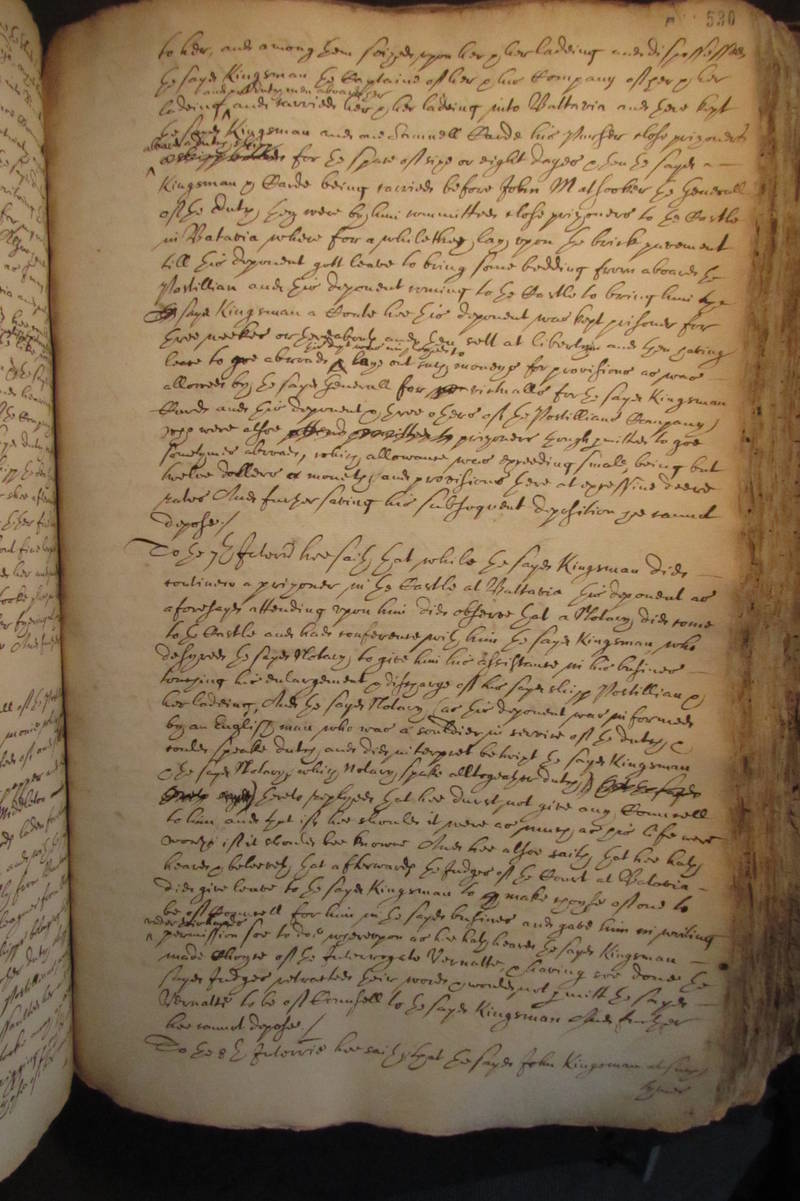 530
to her, and among them seized upon her & her ladeing and dispossessed
the sayd Kingsman the Captaine of her & his Company of her & her
and put dutchmen aboard her
ladeing and carried her & her ladeing into Battavia and there kept
the sayd Kingsman and one Samuell Carde his Purser close prisoners
aboard a dutch shipp
for the space of sixe or eight dayes & then the sayd
Kingsman & Carde being carried before John Matsooker the Generall
of the dutch they were by him committed close prisoners to the Castle
in Batavia where for a while they lay upon the brick pavement
till this deponent gott leave to bring some bedding from aboard the
Postillian and this deponent coming to the Castle to bring him the
sayd Kingsman a Coate hee this deponent was kept prisoner for
three weekes or thereabouts and then sett at liberty and then having
leave to goe abroad & lay out such moneys for provisions as was
allowed by the sayd Generall for victualls for the sayd Kingsman
Carde and this deponent & three others of the Postillians Company,
who were alsoe prisoners though permitted to goe
sometymes abroad, which allowance was exceeding small, being but
twelve dollers a moneth, and provisions there at excessive deere
rates And further saving his subsequent deposition hee cannot
depose./
To the 7th Interrie hee saith that while the sayd Kingsman did
continew a prisoner in the Castle at Battavia this deponent as
aforesayd attending upon him did observe that a Notary did come
to the Castle and had conference with him the sayd Kingsman who
desyred the sayd Notary, to give him his assistance in his busines
touching his enlargement & discharge of his sayd shipp Postillian &
her ladeing, And the sayd Notary (as this deponent was informed
by an English man who was a souldier in service of the dutch, &
could speake dutch, and did interpret betwixt the sayd Kingsman
& the sayd Notary, which Notary spake alltogeather dutch)
thereto replyed that hee durst not give any Councell
to him and that if hee should it were as much as his life were
worth if it should bee knowne And hee alsoe saith that hee hath
heard & beleeveth that afterwards the Judges of the Court at Batavia
did give leave to the sayd Kingsman to make choyse of one to
be of Councell for him in the sayd busines and gave him in writing
permission soe to doe whereupon as hee hath heard the sayd Kingsman
made Choyse of the Interrogate Vernatte, & having soe done the
sayd Judges retracted their word & would not permitt the sayd
Vernatte to be of Counsell to the sayd Kingsman And further
hee cannot depose./
To the 8th Interrie hee saith that the sayd John Kingsman at such
tymes